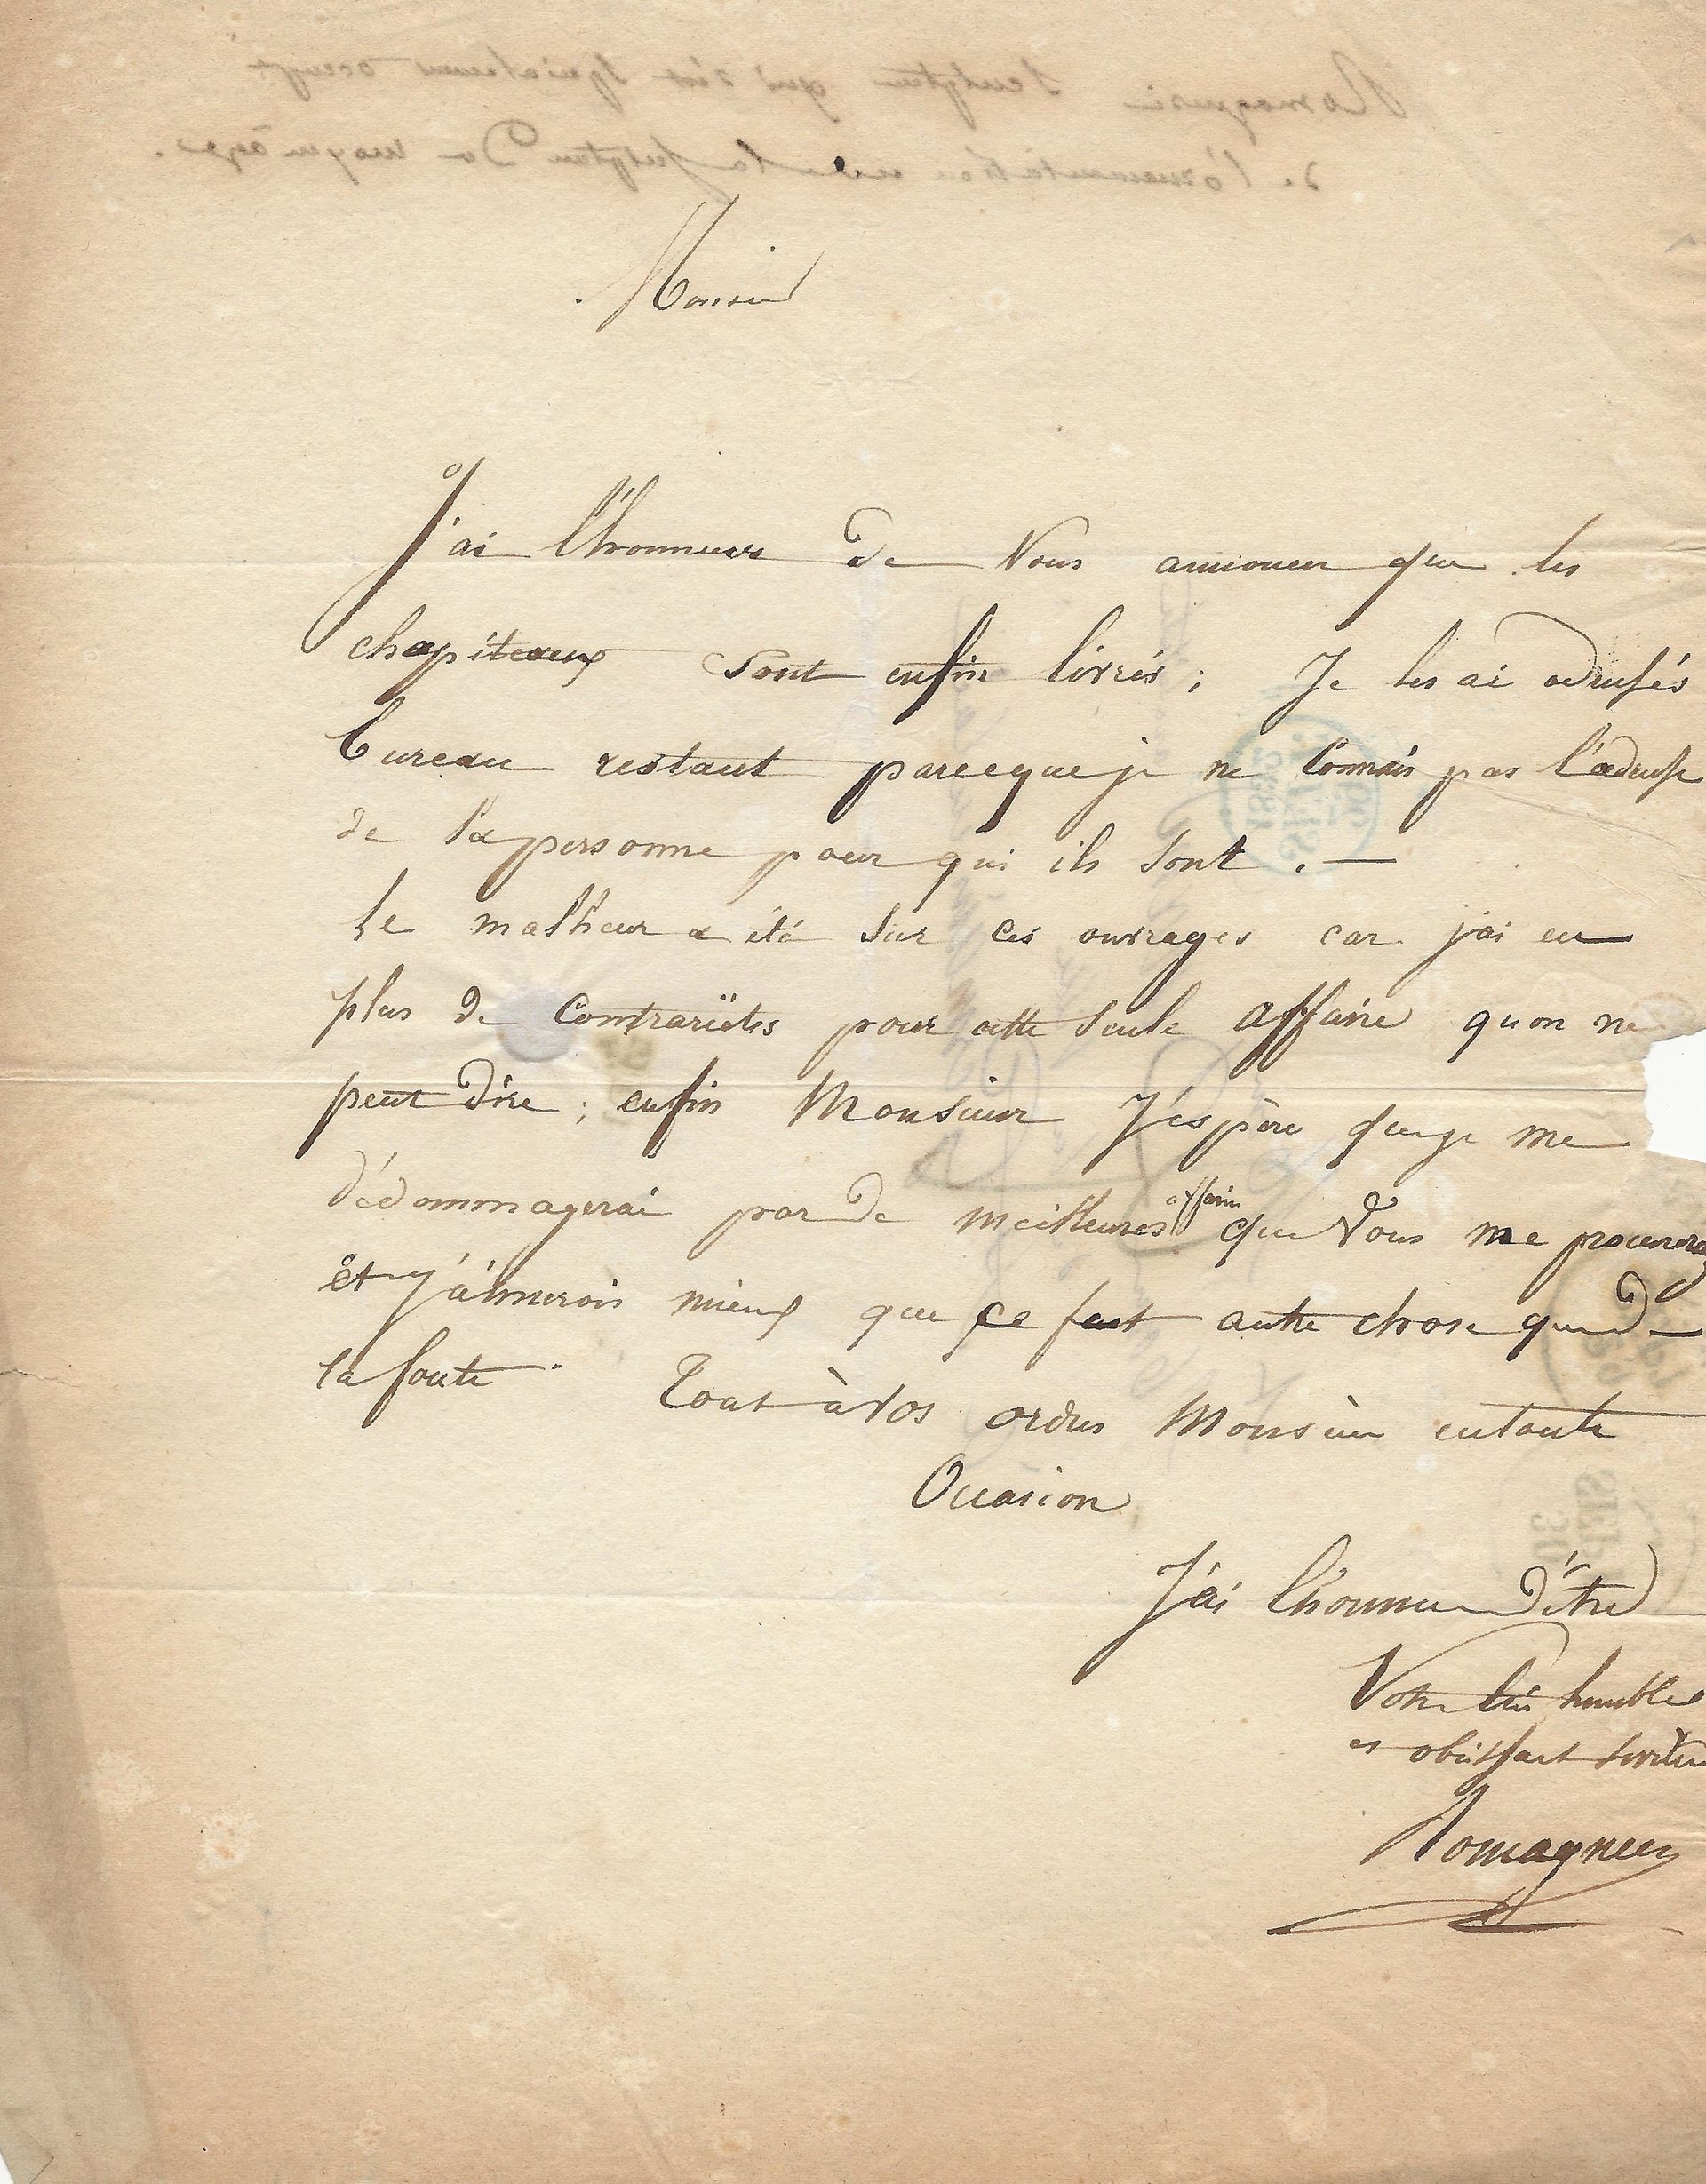 Monsieur
J'ai l'honneur de Vous annoncer que les
chapiteaux Sont enfin livrés ; Je les ai adressés
bureau restant parceque je ne Connais pas l'adresse
de la personne pour qui ils Sont . —
Le malheur a été Sur ces ouvrages car j'ai eu
plus de Contrariëtés pour cette Seule affaire qu'on ne
peut dire ; enfin Monsieur J'espère que je me
dédommagerai par de meilleures affaires que Vous me procurerez
et j'aimerois mieux que ce fut autre chose que de
la fonte . Tout à Vos ordres Monsieur en toute
Occasion
J'ai l'honneur d'être
Votre très humble
et obéissant Serviteur
Romagnesi